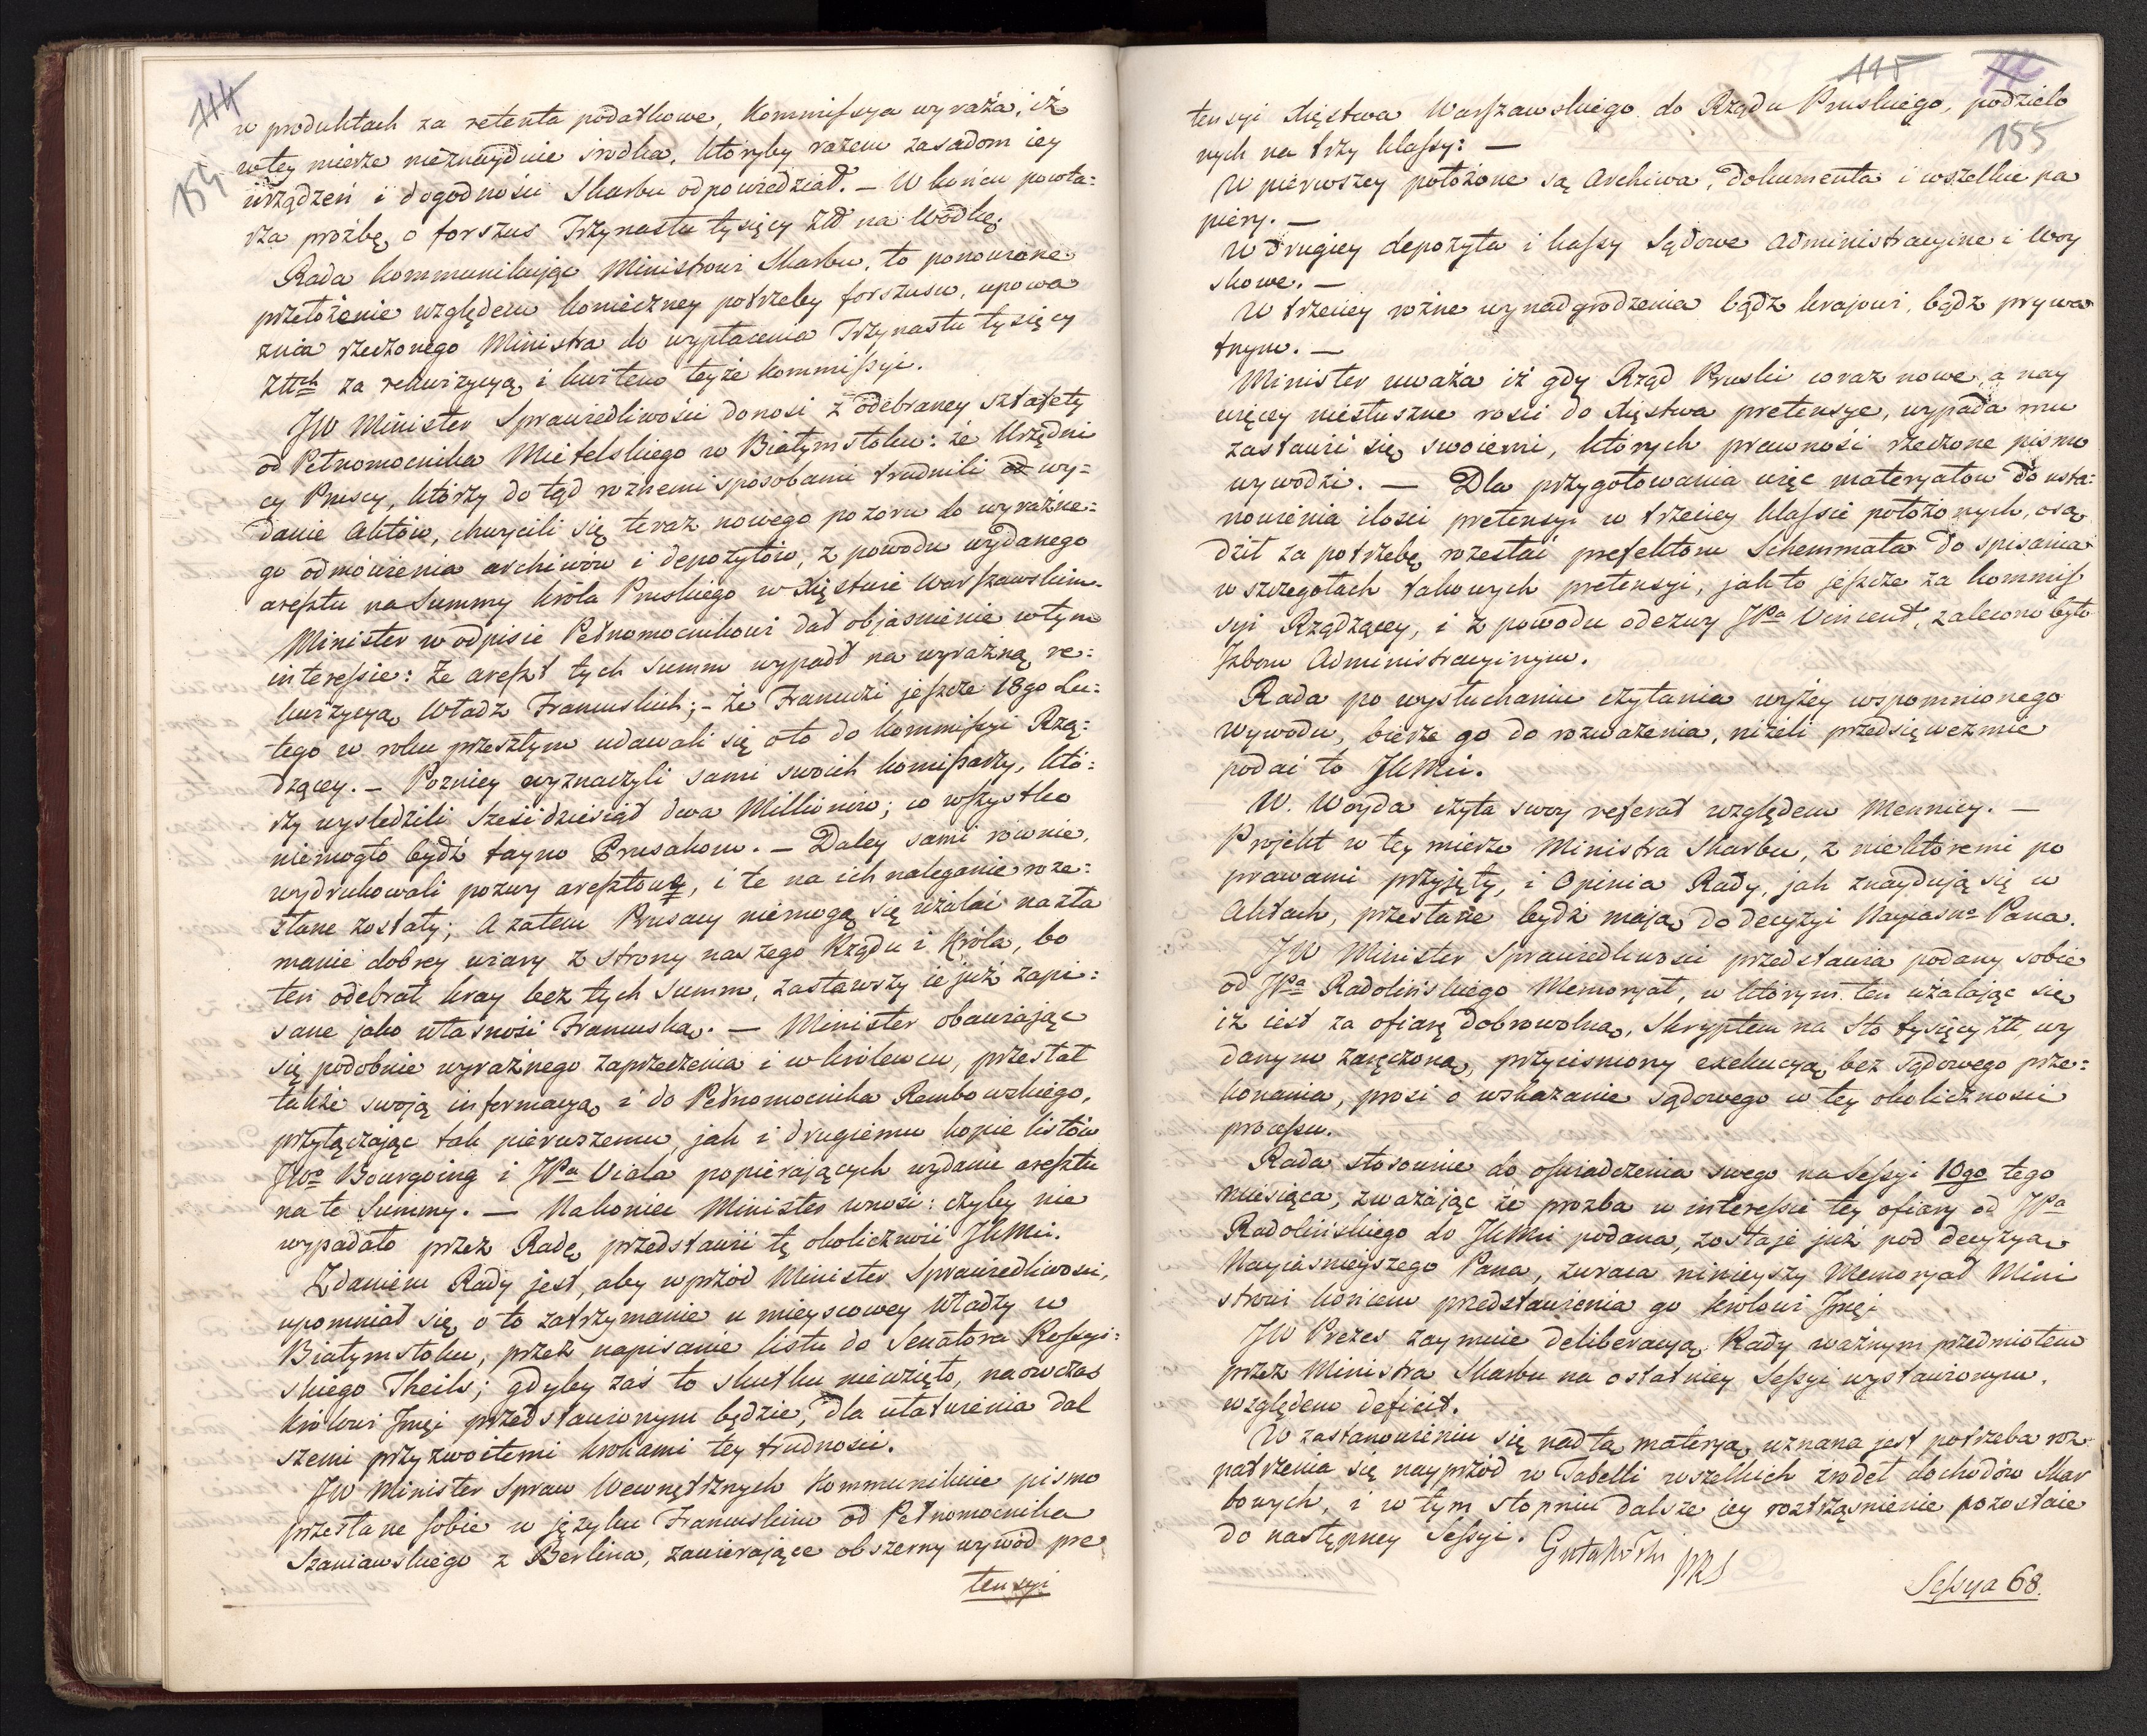 114
154
w produktach za retenta podatkowe, Kommissya wyraża, iż
w tey mierze nieznayduie srodka, któryby razem zasadom iey
urządzeń i dogodności Skarbu odpowiedział. – W końcu powta:
rza proźbę o forszus Trzynastu tysięcy Złł na Wodkę.
Rada kommunikując Ministrowi Skarbu, to ponowione
przełożenie względem konieczney potrzeby forszusu, upowa
żnia rzeczonego Ministra do wypłacenia Trzynastu tysięcy
Złłch za rekwizycyą i kwitem teyże Kommissyi.
JW Minister Sprawiedliwości donosi z odebraney sztafety
od Pełnomocnika Mielelskiego w Białymstoku: że Urzędni
cy Pruscy, którzy do tąd roznemi sposobami trudnili od wy=
danie Aktów, chwycili się teraz nowego pozoru do wyraźne=
go odmówienia archiwów i depozytów, z powodu wydanego
aresztu na Summy Króla Pruskiego w Xięstwie Warszawskim.
Minister w odpisie Pełnomocnikowi dał objasnienie w tym
interessie: Że areszt tych summ wypadł na wyraźną re:
kwizycyą Władz Francuskich; – Że Francuzi jeszcze 18go Lu:
tego w roku przeszłym udawali się oto do Kommissyi Rzą:
dzącey. – Pozniey wyznaczyli sami swoich komissarzy, któ:
rzy wysledzili sześćdziesiąt dwa Millionów; co wszystko
niemogło bydź tayno Prusakom. – Daley sami równie,
wydrukowali pozwy aresztowe, i te na ich naleganie roze:
słane zostały; A zatem Prusacy niemogą się użalać na zła
manie dobrey wiary z strony naszego Rządu i Króla, bo
ten odebrał kray bez tych Summ, zastawszy ie już zapi:
sane jako własność Francuską. – Minister obawiając
się podobnie wyraźnego zaprzeczenia i w Królewcu, przesłał
także swoją informacyą i do Pełnomocnika Rembowskiego,
przyłączając tak pierwszemu, jak i drugiemu kopie listów
JWo Bourgoing i JPa Viala popierających wydanie aresztu
na te Summy. – Nakoniec Minister wnosi: czyby nie
wypadało przez Radę przedstawić tę okoliczność JKMci.
Zdaniem Rady jest, aby wprzód Minister Sprawiedliwości,
upomniał się o to zatrzymanie u mieyscowey Władzy w
Białymstoku, przez napisanie listu do Senatora Rossyi:
skiego Theils; gdyby zaś to skutku niewzięło, naowczas
Królowi Jmći przedstawionym będzie, dla ułatwienia dal
szemi przyzwoitemi krokami tey trudności.
JW Minister Spraw Wewnętrznych Kommunikuie pismo
przesłane sobie w języku Francuskim od Pełnomocnika
Szaniawskiego z Berlina, zawierające obszerny wywód pre
tensyi
115
155
tensyi Xięstwa Warszawskiego do Rządu Pruskiego, podzielo
nych na trzy klassy: –
W pierwszey położone są Archiwa, Dokumenta i wszelkie pa
piery. –
W drugiey depozyta i kassy Sądowe Administracyine i Woy
skowe. –
W trzeciey rożne wynadgrodzenia bądź krajowi, bądź prywa
tnym. –
Minister uważa iż gdy Rząd Pruski coraz nowe, a nay
więcey niesłuszne rości do Xięstwa pretensye, wypada mu
zastawić się swoiemi, których prawność rzeczone pismo
wywodzi. – Dla przygotowania więc materyałow do usta:
nowienia ilości pretensyi w trzeciey klassie położonych, osą
dził za potrzebę rozesłać prefektom Schemmata do spisania
w szczegołach takowych pretensyi, jak to jeszcze za Kommis
syi Rządzącey, i z powodu odezwy JPa Vincent, zalecono było
Izbom Administracyinym.
Rada po wysłuchaniu czytania wyżey wspomnionego
wywodu, bierze go do rozważenia, niżeli przedsięweźmie
podać to JKMci.
W. Woyda czyta swoy referat względem Mennicy. –
Projekt w tey mierze Ministra Skarbu, z niektóremi po
prawami przyjęty, i Opinia Rady, jak znayduią się w
Aktach, przesłane bydź mają do decyzyi Nayiasno Pana.
JW Minister Sprawiedliwości przedstawia podany sobie
od JPa Radolińskiego Memoryał, w którym ten użalając się
iż iest za ofiarę dobrowolną, Skryptem na Sto tysięcy Złł, wy
danym zaręczoną, przycisniony exekucyą bez Sądowego prze=
konania, prosi o wskazanie sądowego w tey okoliczności
processu.
Rada stosownie do oświadczenia swego na Sessyi 10go tego
miesiąca, zważając że prozba w interessie tey ofiary od JPa
Radolińskiego do JKMci podana, zostaje już pod decyzyą
Nayiaśnieyszego Pana, zwraca ninieyszy Memoryał Mini
strowi końcem przedstawienia go Królowi Jmći
JW Prezes zaymuie deliberacyą Rady ważnym przedmiotem
przez Ministra Skarbu na ostatniey Sessyi wystawionym,
względem deficit.
W zastanowieniu się nad tą materyą, uznana jest potrzeba roz
patrzenia się nayprzód w Tabelli wszelkich zrodeł dochodów Skar
bowych, i w tym stopniu dalsze iey roztrząsnienie pozostaie
do następney Sessyi. Gutakowski PRS
Sessya 68.